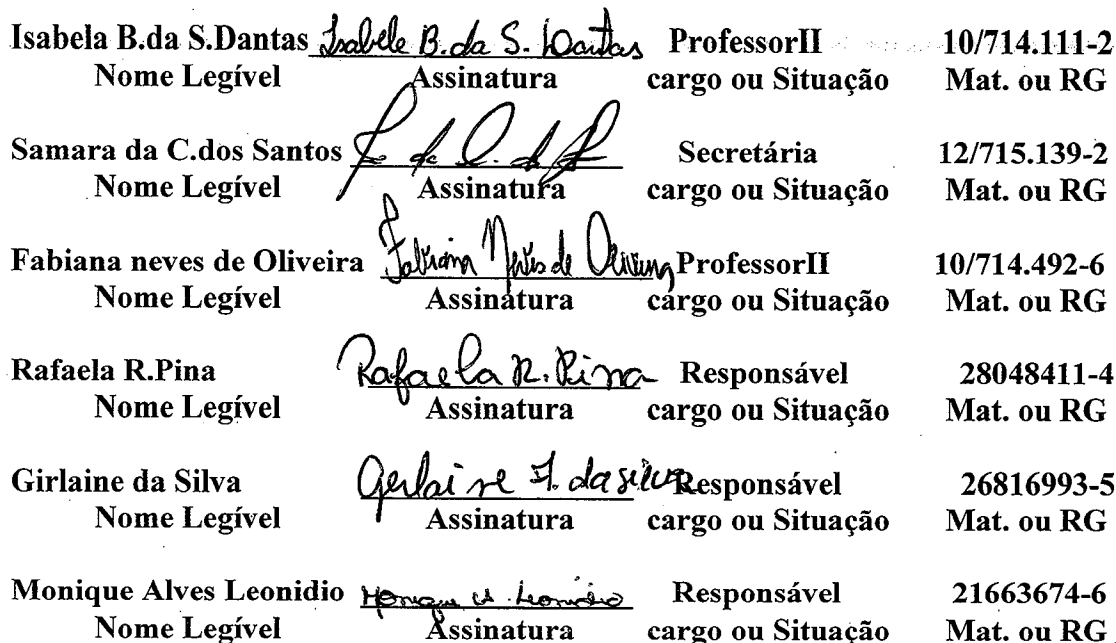 Isabela B.da S.Dantas Isabele B. da S. Dantas ProfessorII 10/714.111-2
Nome Legível Assinatura cargo ou Situação Mat. ou RG
Samara da C.dos Santos Secretária 12/715.139-2
Nome Legível Assinatura cargo ou Situação Mat. ou RG
Fabiana neves de Oliveira Fabiana Neves de Oliveira ProfessorII 10/714.492-6
Nome Legível Assinatura cargo ou Situação Mat. ou RG
Rafaela R.Pina Rafaela R. Pina Responsável 28048411-4
Nome Legível Assinatura cargo ou Situação Mat. ou RG
Girlaine da Silva Gerlaine F. da silva Responsável 26816993-5
Nome Legível Assinatura cargo ou Situação Mat. ou RG
Monique Alves Leonidio Monique A. Leonidio Responsável 21663674-6
Nome Legível Assinatura cargo ou Situação Mat. ou RG